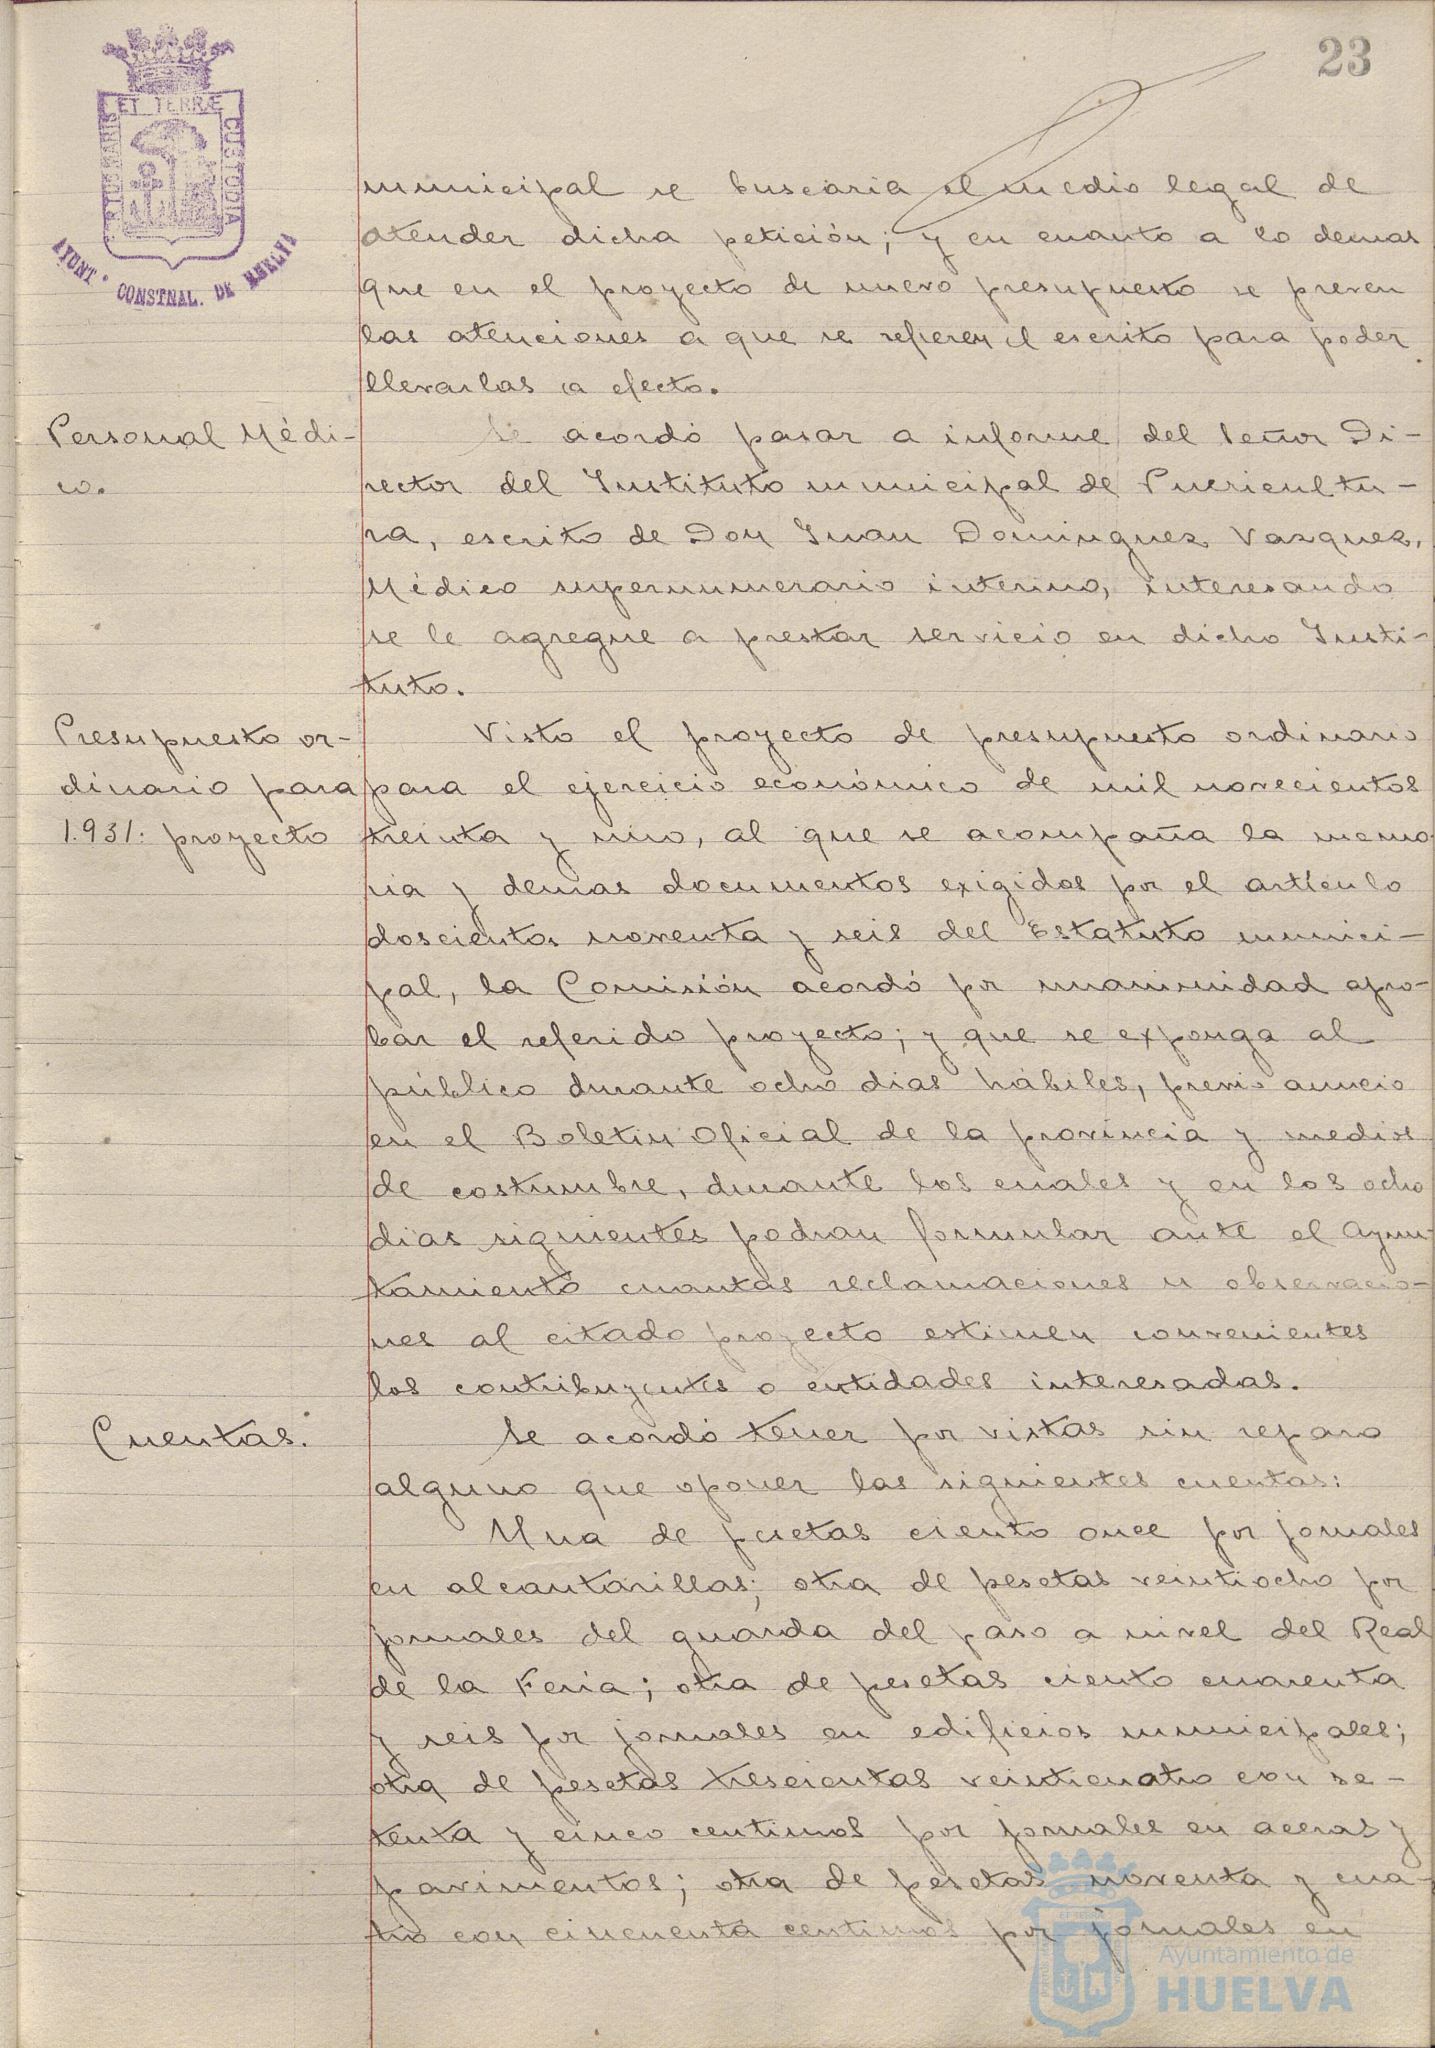 23
PORTUS MARIS ET TERRÆ CUSTODIA
AYUNT.º CONSTNAL. DE HUELVA
municipal se buscaria el medio legal de
atender dicha petición; y en cuanto a lo demas
que en el proyecto de nuevo presupuesto se preven
las atenciones a que se refieren el escrito para poder
llevarlas a efecto.
Personal Médi-
co.
Se acordó pasar a informe del Señor Di-
rector del Instituto municipal de Puericultu-
ra, escrito de Don Juan Dominguez Vazquez,
Médico supernumerario interino, interesando
se le agregue a prestar servicio en dicho Insti-
tuto.
Presupuesto or-
dinario para
1.931: proyecto
Visto el proyecto de presupuesto ordinario
para el ejercicio económico de mil novecientos
treinta y uno, al que se acompaña la memo
ria y demas documentos exigidos por el artículo
doscientos noventa y seis del Estatuto munici-
pal, la Comisión acordó por unanimidad apro-
bar el referido proyecto; y que se exponga al
público durante ocho dias hábiles, previo anuncio
en el Boletin Oficial de la provincia y medios
de costumbre, durante los cuales y en los ocho
dias siguientes podran formular ante el Ayun-
tamiento cuantas reclamaciones u observacio-
nes al citado proyecto estimen convenientes
los contribuyentes o entidades interesadas.
Cuentas.
Se acordó tener por vistas sin reparo
alguno que oponer las siguientes cuentas:
Una de pesetas ciento once por jornales
en alcantarillas; otra de pesetas veintiocho por
jornales del guarda del paso a nivel del Real
de la Feria; otra de pesetas ciento cuarenta
y seis por jornales en edificios municipales;
otra de pesetas trescientas veinticuatro con se-
tenta y cinco centimos por jornales en aceras y
pavimentos; otra de pesetas noventa y cua-
tro con cincuenta centimos por jornales en
Ayuntamiento de
HUELVA